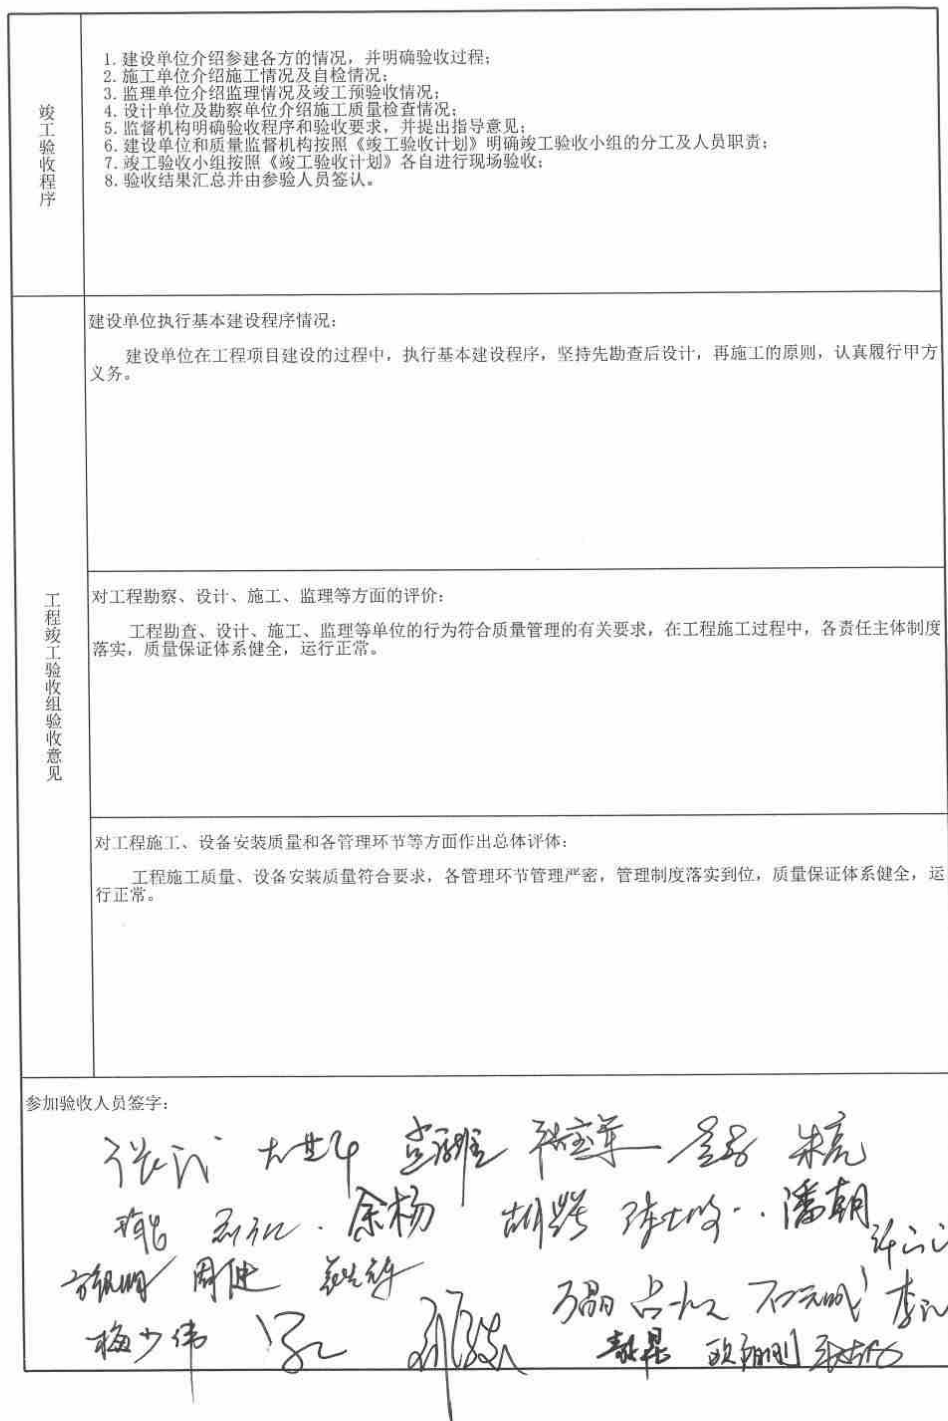 竣工验收程序
1. 建设单位介绍参建各方的情况，并明确验收过程；
2. 施工单位介绍施工情况及自检情况；
3. 监理单位介绍监理情况及竣工预验收情况；
4. 设计单位及勘察单位介绍施工质量检查情况；
5. 监督机构明确验收程序和验收要求，并提出指导意见；
6. 建设单位和质量监督机构按照《竣工验收计划》明确竣工验收小组的分工及人员职责；
7. 竣工验收小组按照《竣工验收计划》各自进行现场验收；
8. 验收结果汇总并由参验人员签认。
工程竣工验收组验收意见
建设单位执行基本建设程序情况：
建设单位在工程项目建设的过程中，执行基本建设程序，坚持先勘查后设计，再施工的原则，认真履行甲方
义务。
对工程勘察、设计、施工、监理等方面的评价：
工程勘查、设计、施工、监理等单位的行为符合质量管理的有关要求，在工程施工过程中，各责任主体制度
落实，质量保证体系健全，运行正常。
对工程施工、设备安装质量和各管理环节等方面作出总体评体：
工程施工质量、设备安装质量符合要求，各管理环节管理严密，管理制度落实到位，质量保证体系健全，运
行正常。
参加验收人员签字：
朱亮
余杨 潘朝
周健
梅少伟